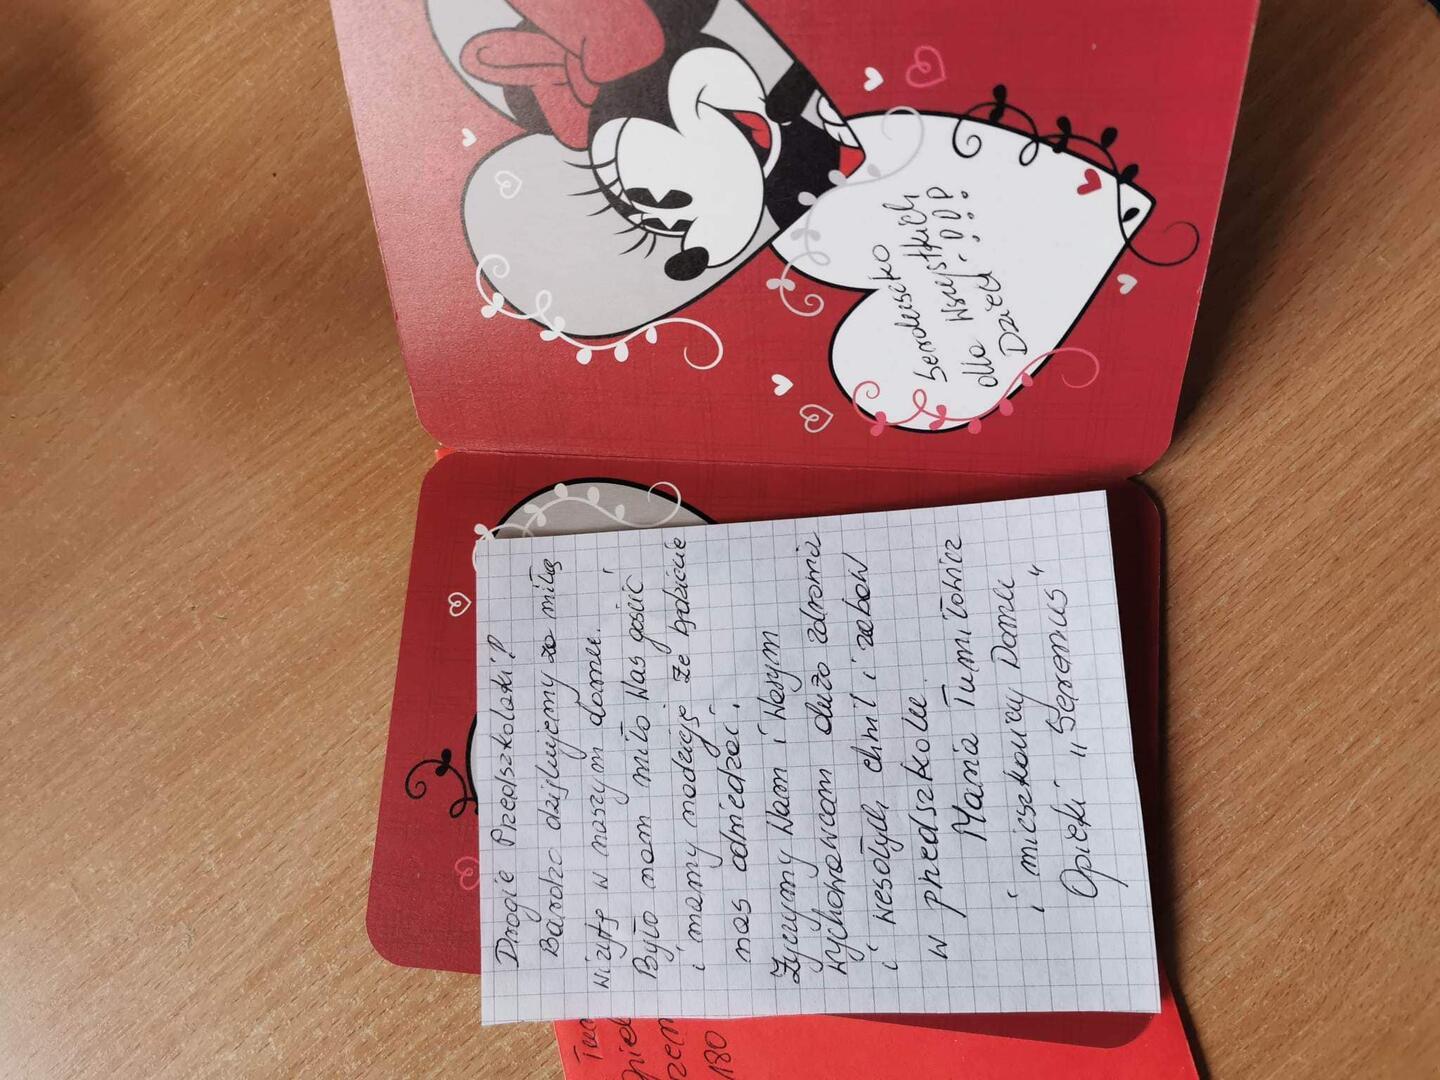 Serduszko
dla Wszystkich
Dzieci!!!
Drogie Przedszkolaki!
Bardzo dziękujemy za miłą
wizytę w naszym domu.
Było nam miło Was gościć
i mamy nadzieję że będziecie
nas odwiedzać.
Życzymy Wam i Waszym
wychowawcom dużo zdrowia
i wesołych chwil i zabaw
w przedszkolu.
Maria Tumiłowicz
i mieszkańcy Domu
Opieki „Seremus"
180